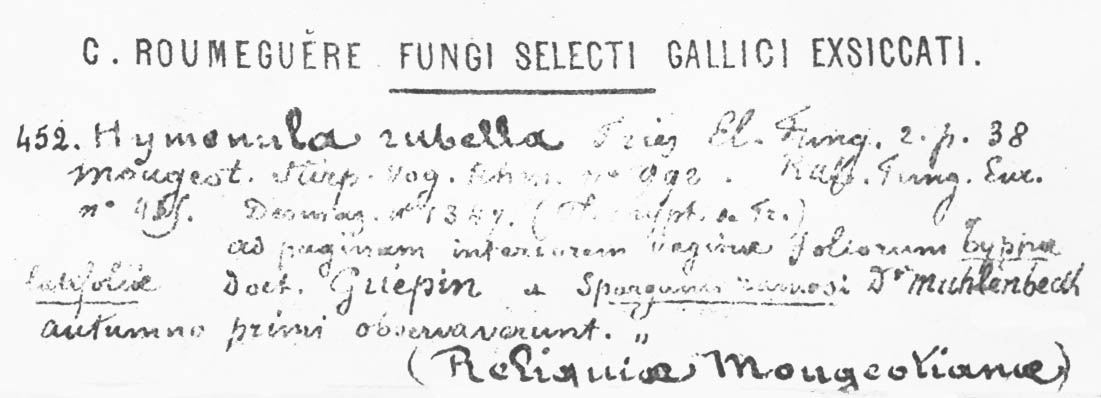 C. ROUMEGUÈRE FUNGI SELECTI GALLICI EXSICCATI.
452. Hymenula rubella Fries El. Fung. 2. p. 38
Mougeot. Stirp. Vog. Rhen. nº 992. Fung. Eur.
nº Desmaz. nº 1347. (Pl. crypt. de Fr.)
ad paginam interiorem vaginæ foliorum Typhæ
latifoliæ Doct. Guépin & Sparganii ramosi Dr Muhlenbeck
autumno primi observaverunt. „
(Reliquiæ Mougeotianæ)